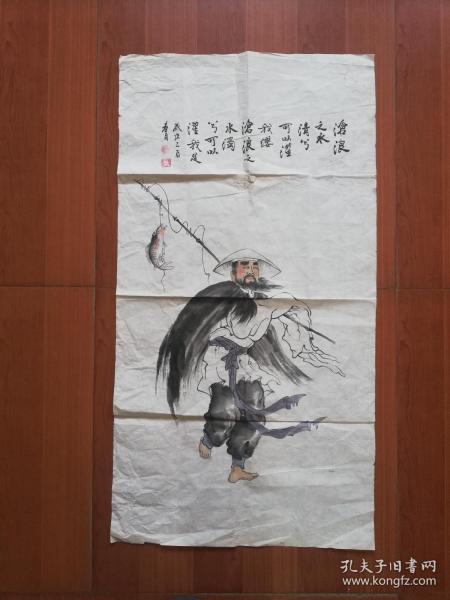 滄浪
之水
清兮
可以濯
我缨
滄浪之
水濁
兮可以
濯我足
孔夫子旧书网
www.kongfz.com